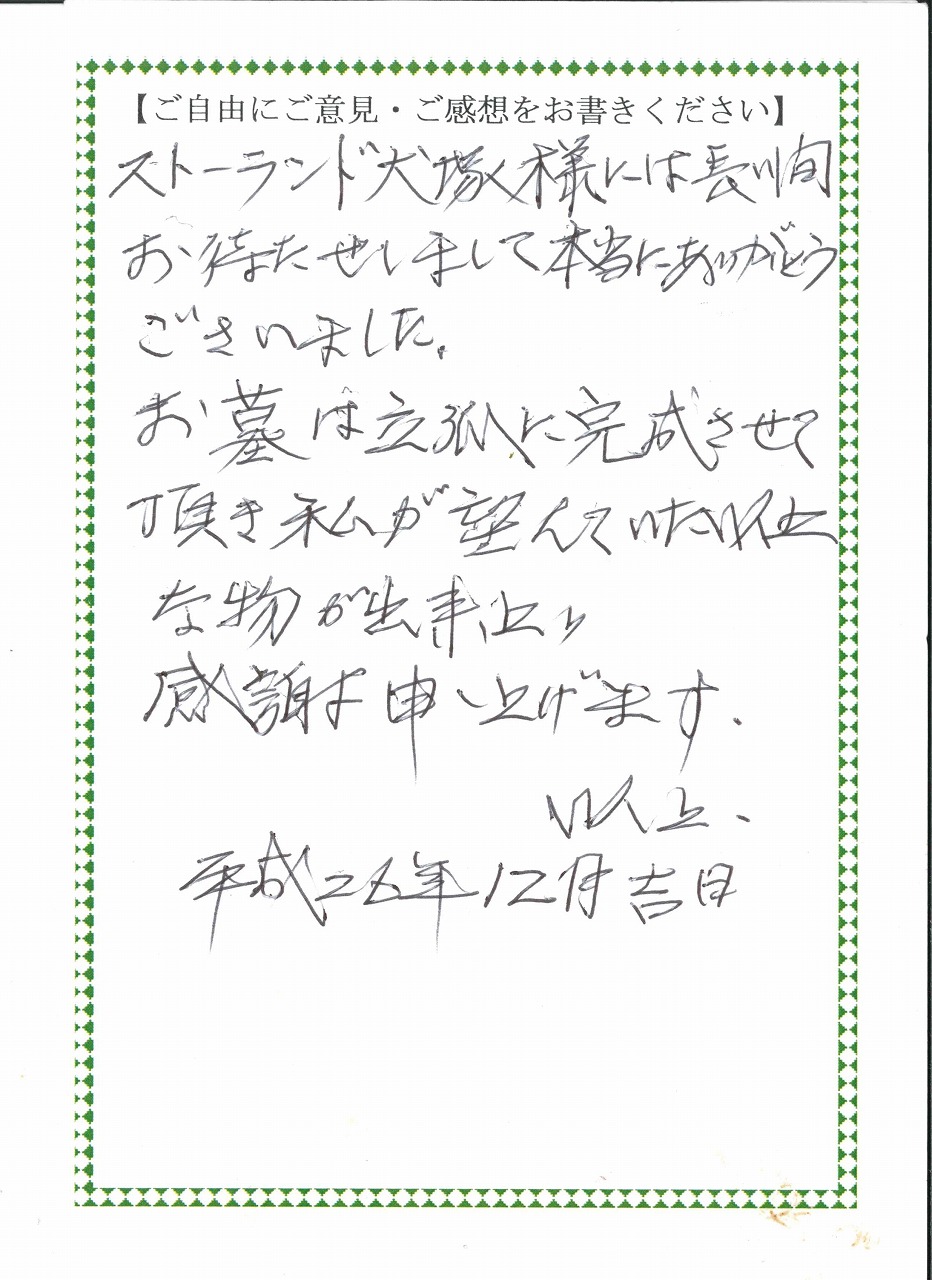 【ご自由にご意見・ご感想をお書きください】
ストーランド犬塚様には長い間
お待たせしまして本当にありがとう
ございました。
お墓は立派に完成させて
頂き私が望んでいた以上
な物が出来上り
感謝申し上げます.
以上、
平成26年12月吉日